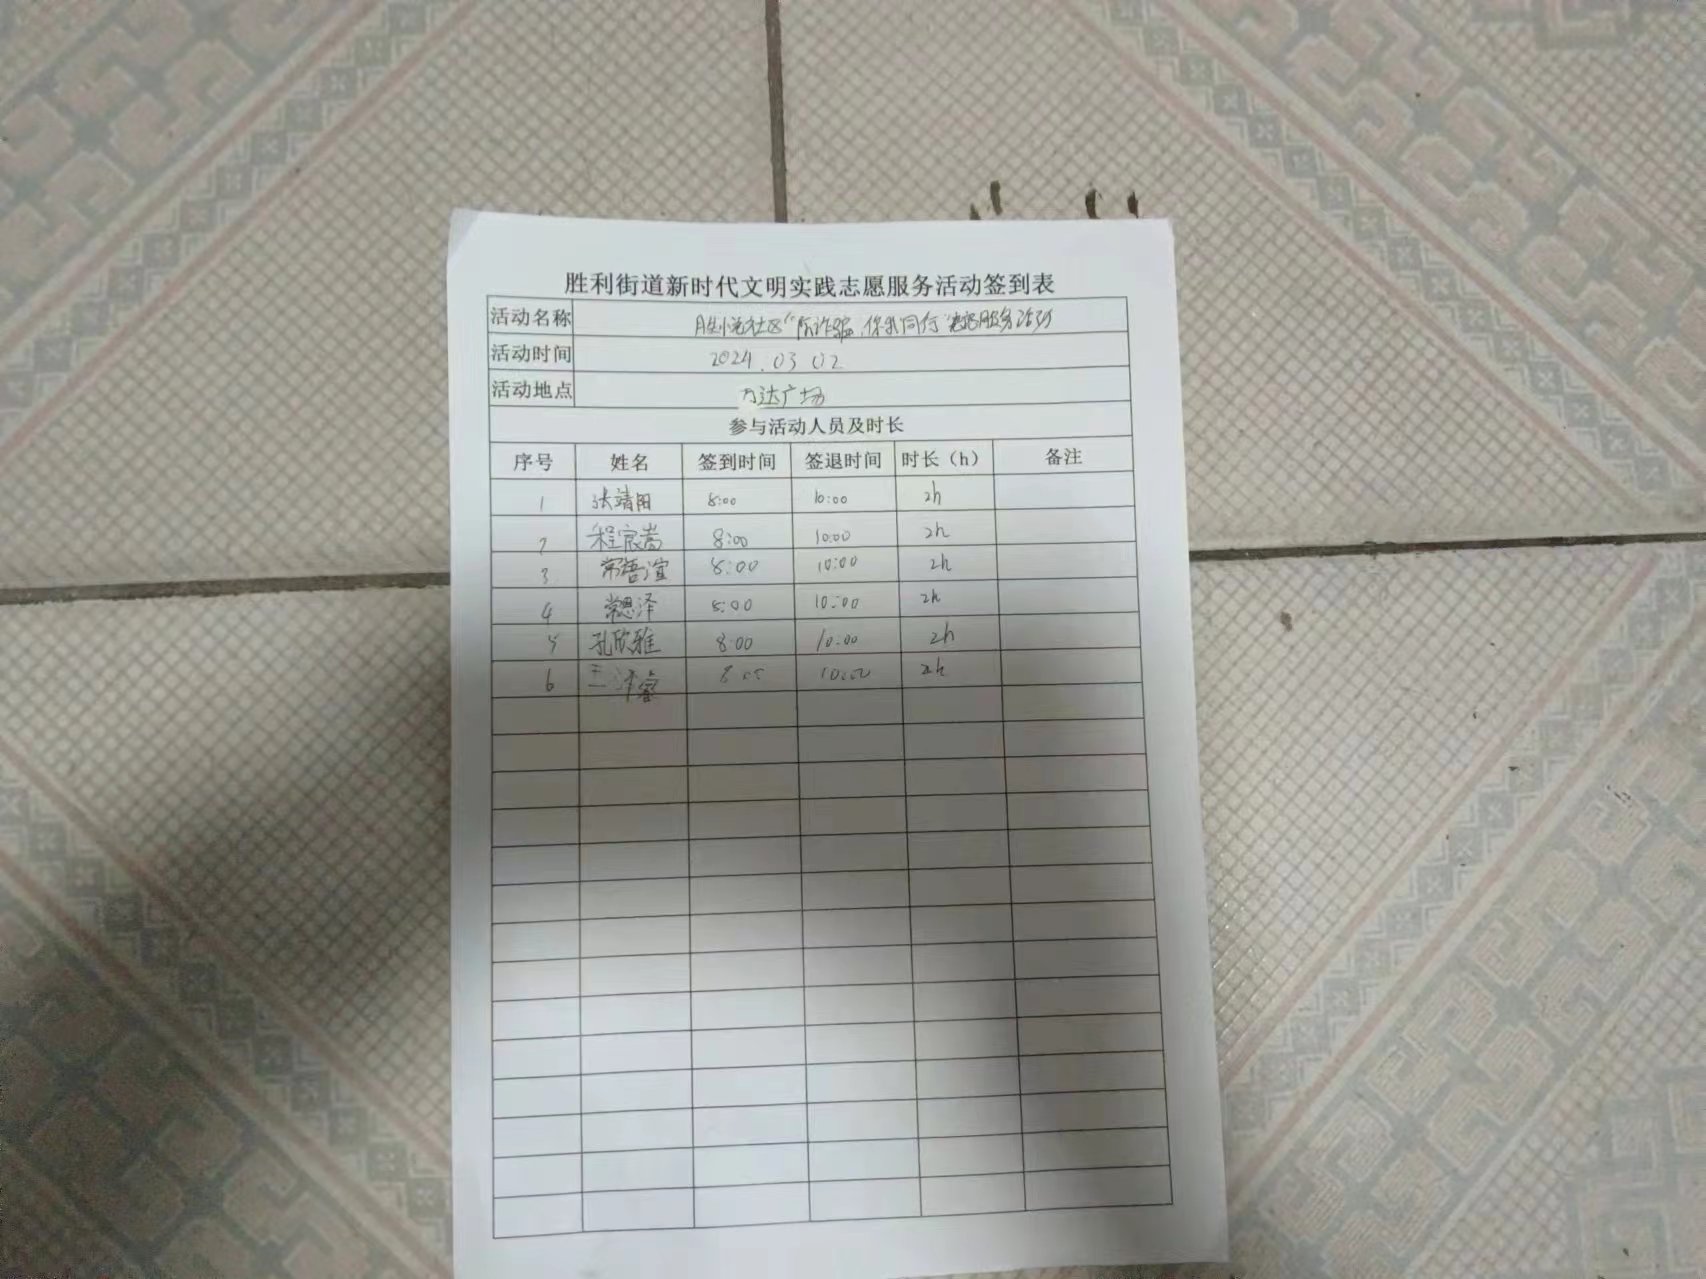 胜利街道新时代文明实践志愿服务活动签到表
活动名称 社区“防诈骗,你我同行”志愿服务活动
活动时间 2024.03.02
活动地点 万达广场
参与活动人员及时长
序号 姓名 签到时间 签退时间 时长(h) 备注
1 张靖阳 8:00 10:00 2h
2 程宸嵩 8:00 10:00 2h
3 常语渲 8:00 10:00 2h
4 常思泽 8:00 10:00 2h
5 孔欣雅 8:00 10:00 2h
6 王 睿 8:00 10:00 2h